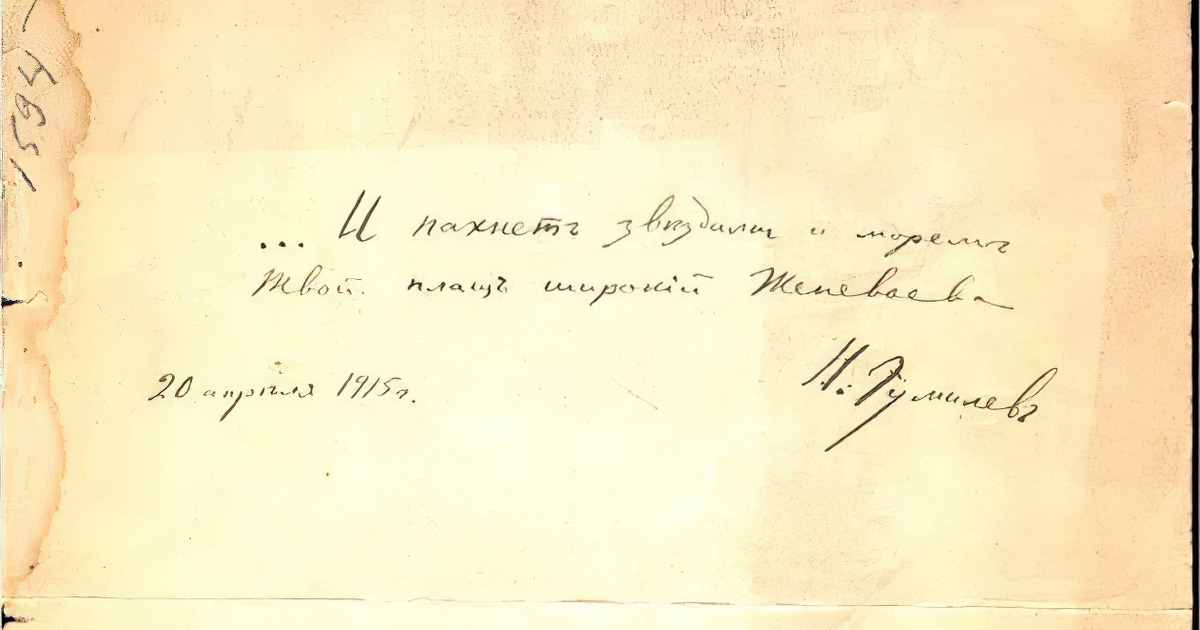 1594
... И пахнетъ звѣздами и моремъ
Твой плащъ широкій Женеваева
20 апрѣля 1915 г.
Н. Гумилевъ